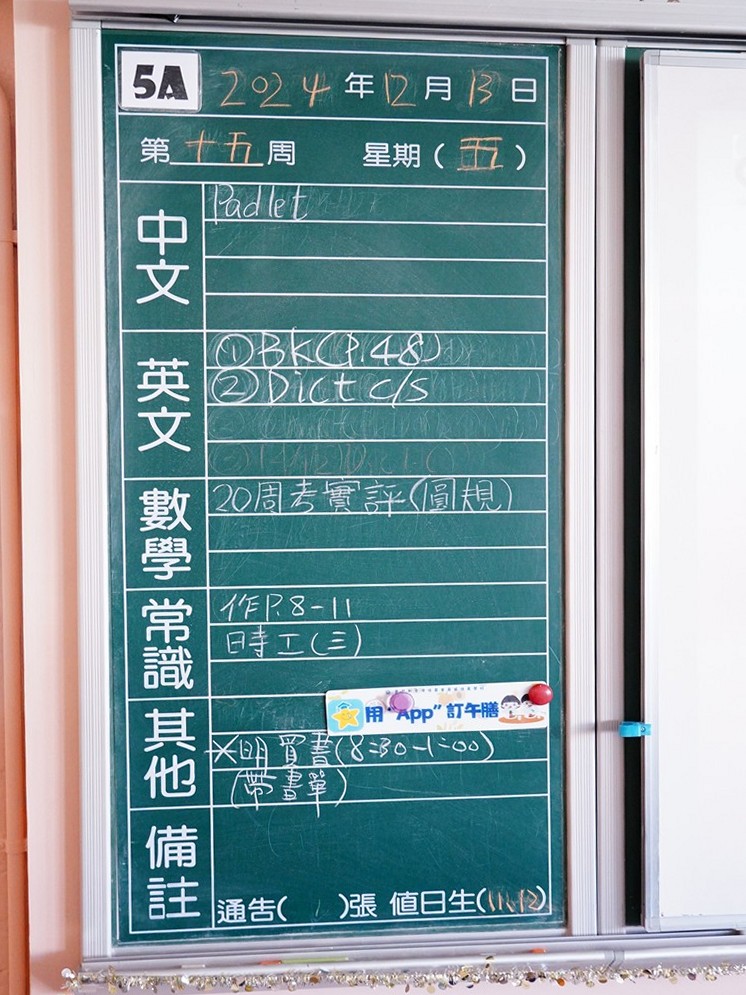 5A 2024年12月13日
第十五周 星期(五)
中文
Padlet
英文
①BK(P.48)
②Dict c/s
數學
20周考實評(圓規)
常識
作P.8-11
時工(三)
用"App"訂午膳
其他
※明買書(8:30-1:00)
(帶書單)
備註
通告( )張 值日生(11,12)